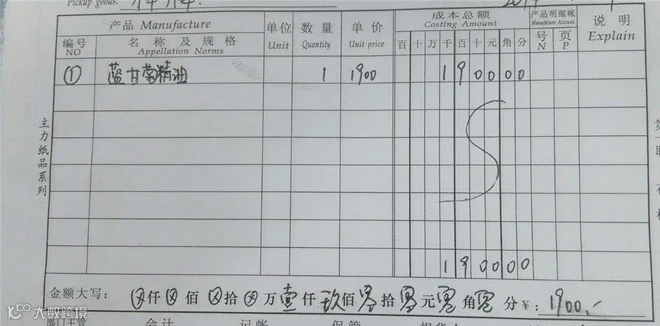 Pickup goods:
产品 Manufacture 单位 Unit 数量 Quantity 单价 Unit price 成本总额 Costing Amount 产品明细帐 说明 Explain
编号 NO 名称及规格 Appellation Norms 百十万千百十元角分 号 N 页 P
① 蓝甘菊精油 1 1900 190000
主力纸品系列
190000
金额大写: ⊗仟⊗佰⊗拾⊗万壹仟玖佰零拾零元零角零分 ¥: 1900.-
大眼跨境
部门主管 会计 记帐 保管